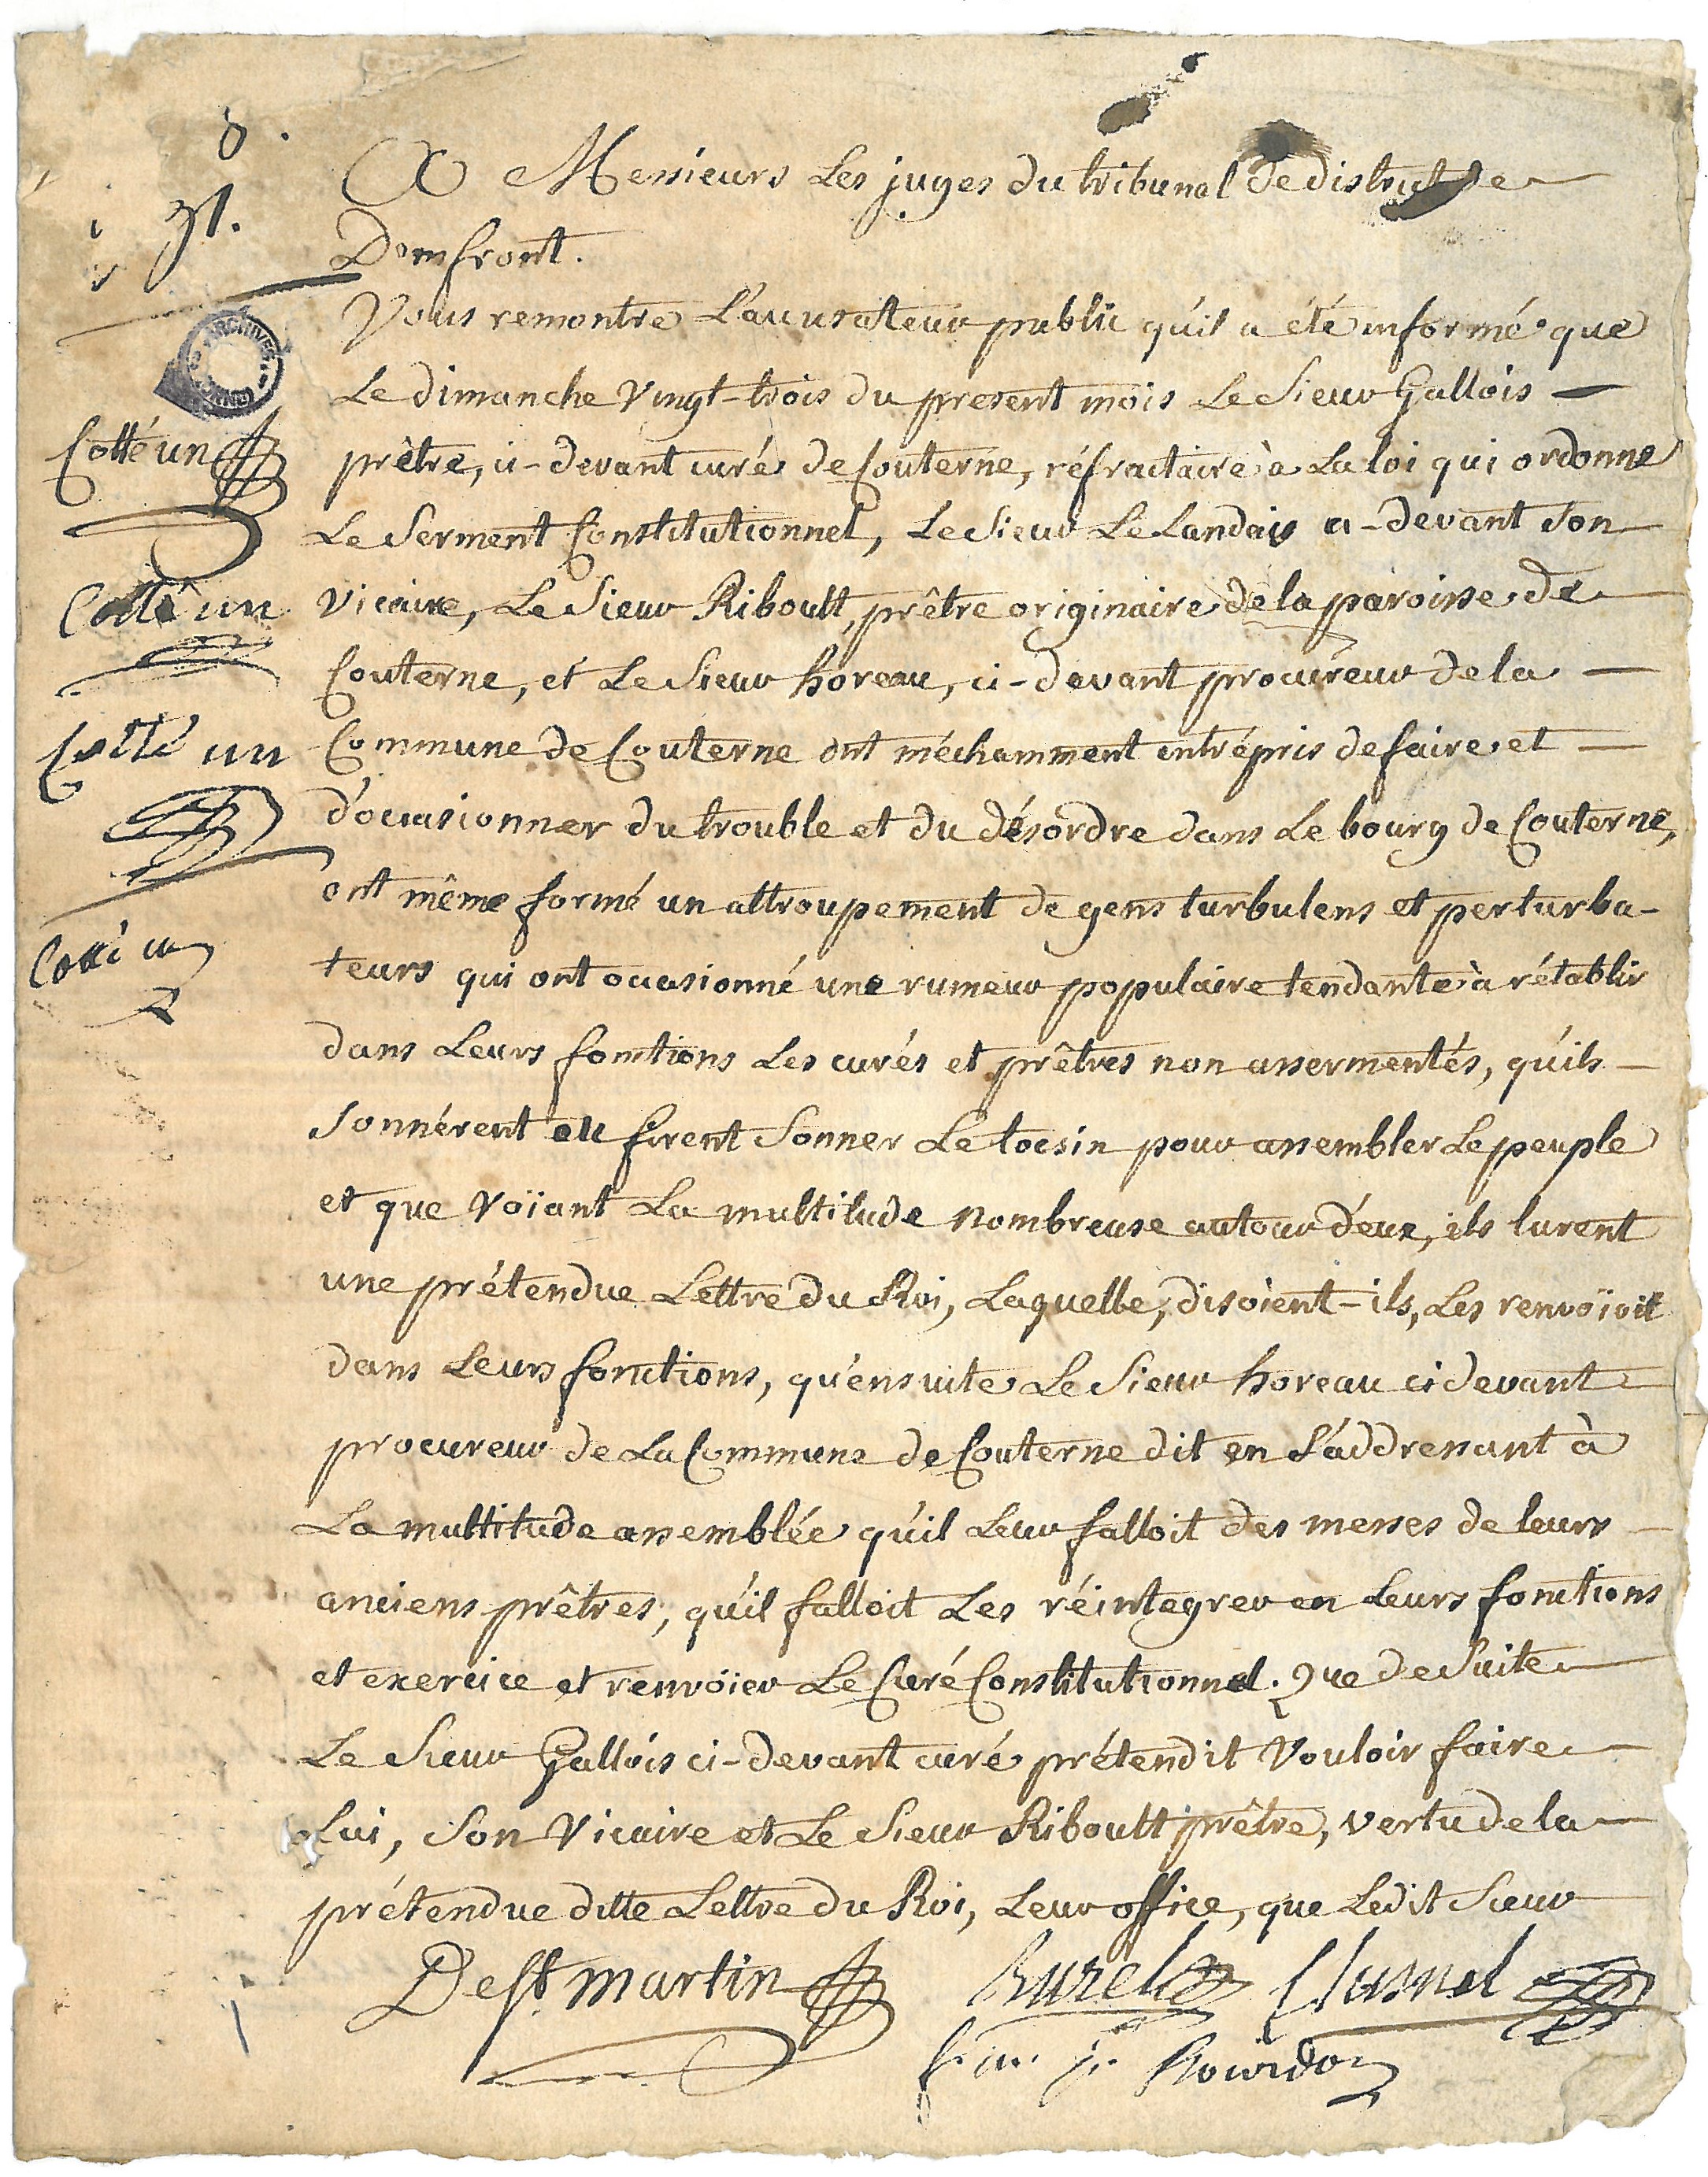 A Messieurs Les juges du tribunal de district de
Domfront.
Vous remontre L'accusateur public qu'il a été informé que
Le dimanche Vingt-trois du present mois Le Sieur Gallois
prêtre, ci-devant curé de Couterne, réfractaire à La loi qui ordonne
Le Serment Constitutionnel, Le Sieur Le Landais ci-devant Son
Vicaire, Le Sieur Riboult, prêtre originaire de la paroisse de
Couterne, et Le Sieur horeau, ci-devant procureur de la
Commune de Couterne ont méchamment entrépris de faire et
d'occasionner du trouble et du désordre dans Le bourg de Couterne,
ont même formé un attroupement de gens turbulens et perturba-
teurs qui ont occasionné une rumeur populaire tendante à rétablir
dans Leurs fonctions Les curés et prêtres non assermentés, qu'ils
Sonnérent ou firent Sonner Le tocsin pour assembler Le peuple
et que Voïant La multitude nombreuse autour d'eux, ils lurent
une prétendue Lettre du Roi, Laquelle, disoient-ils, Les renvoïoit
dans Leurs fonctions, qu'ensuite Le Sieur horeau ci devant
procureur de La Commune de Couterne dit en S'addressant à
La multitude assemblée qu'il Leur falloit des messes de leurs
anciens prêtres, qu'il falloit Les réintegrer en Leurs fonctions
et exercice et renvoïer Le Curé Constitutionnel. Que de Suite
Le Sieur Gallois ci-devant curé prétendit Vouloir faire
Lui, Son Vicaire et Le Sieur Riboult prêtre, vertu de la
prétendue ditte Lettre du Roi, Leur office, que Ledit Sieur
De St. martin Burel Clusnel
Bourdon
31.
ARCHIVES
Cotté un
Cotté un
Cotté un
Cotté un